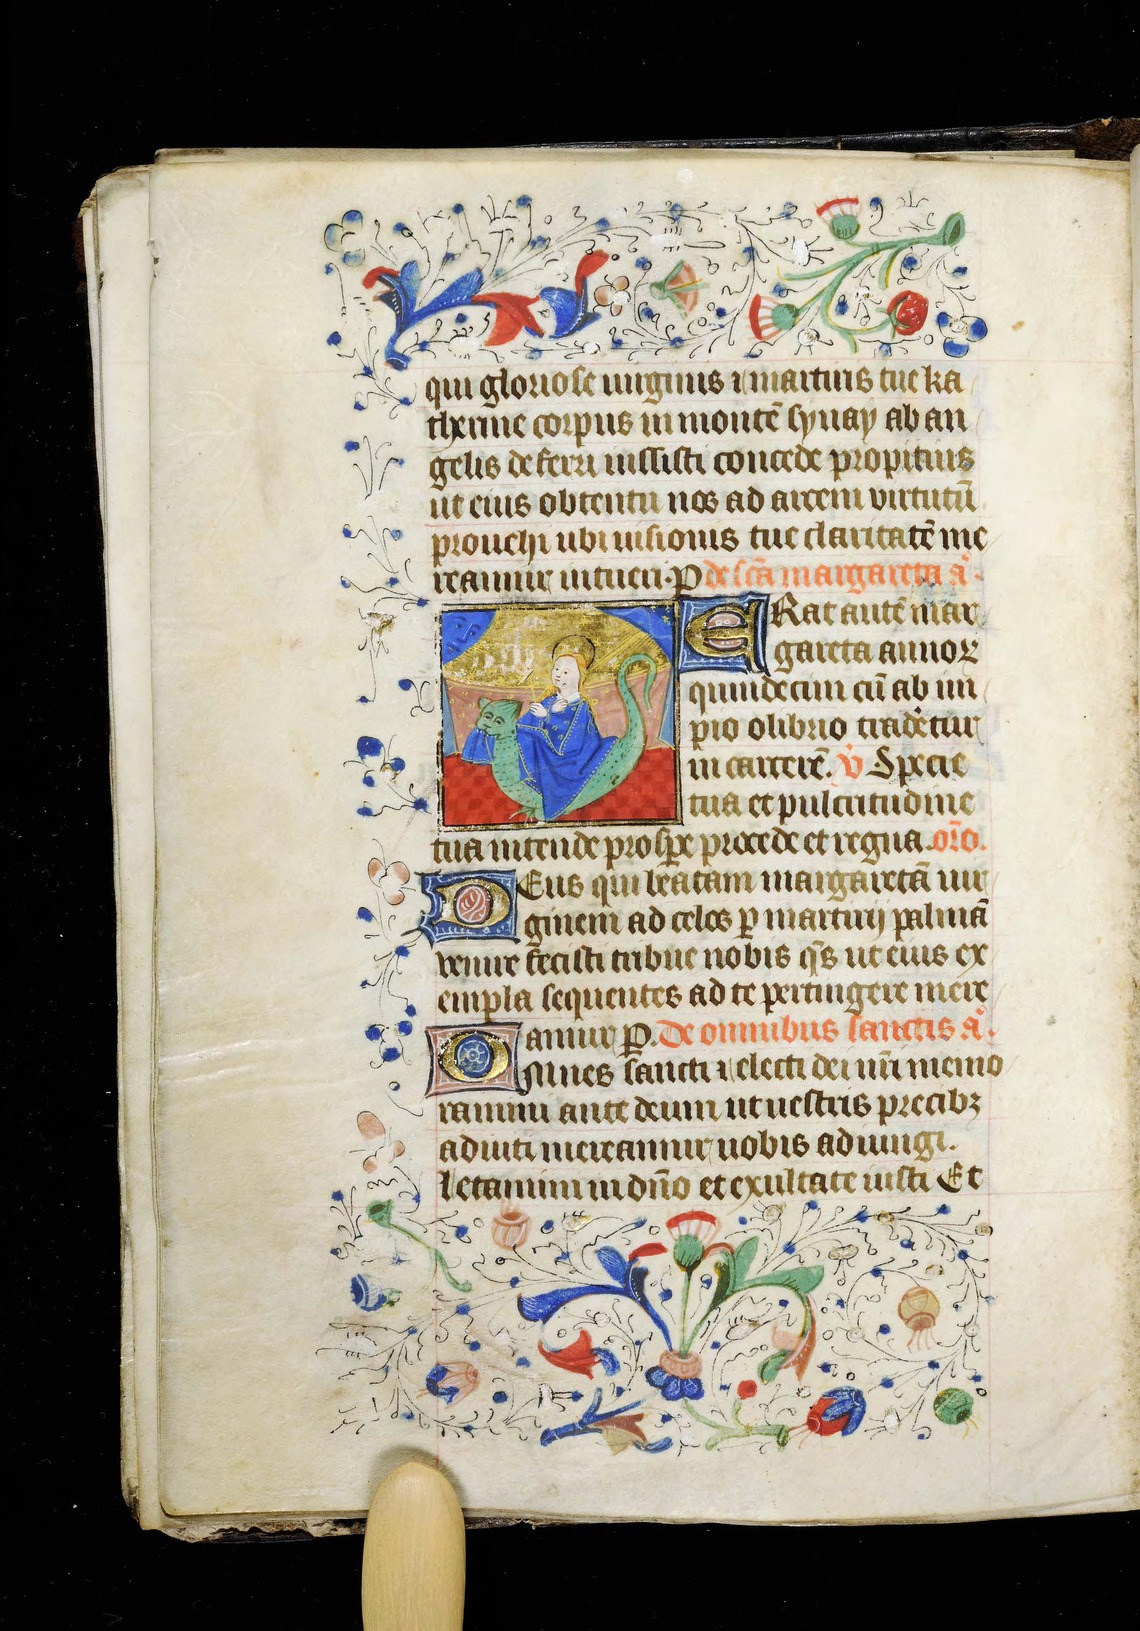 qui gloriose uirginis ⁊ martiris tue ka
therine corpus in montē synay ab an
gelis deferri iussisti concede propitius
ut eius obtentu nos ad arcem virtutū
prouehi ubi uisionis tue claritatē me
reamur intueri. P de scā margareta a̅.
ERat autē mar
gareta annoꝝ
quindecim cū ab im
pio olibrio tradetur
in carcerē. v̅ Specie
tua et pulcritudine
tua intende prospe procede et regna. orō.
DEus qui beatam margaretā uir
ginem ad celos ꝑ martirij palmā
venire fecisti tribue nobis qs̄ ut eius ex
empla sequentes ad te pertingere mere
amur P. De omnibus sanctis a̅.
Omnes sancti ⁊ electi dei nr̄i memo
ramini ante deum ut uestris precibꝫ
adiuti mereamur uobis adiungi.
letamini in dn̄o et exultate iusti Et